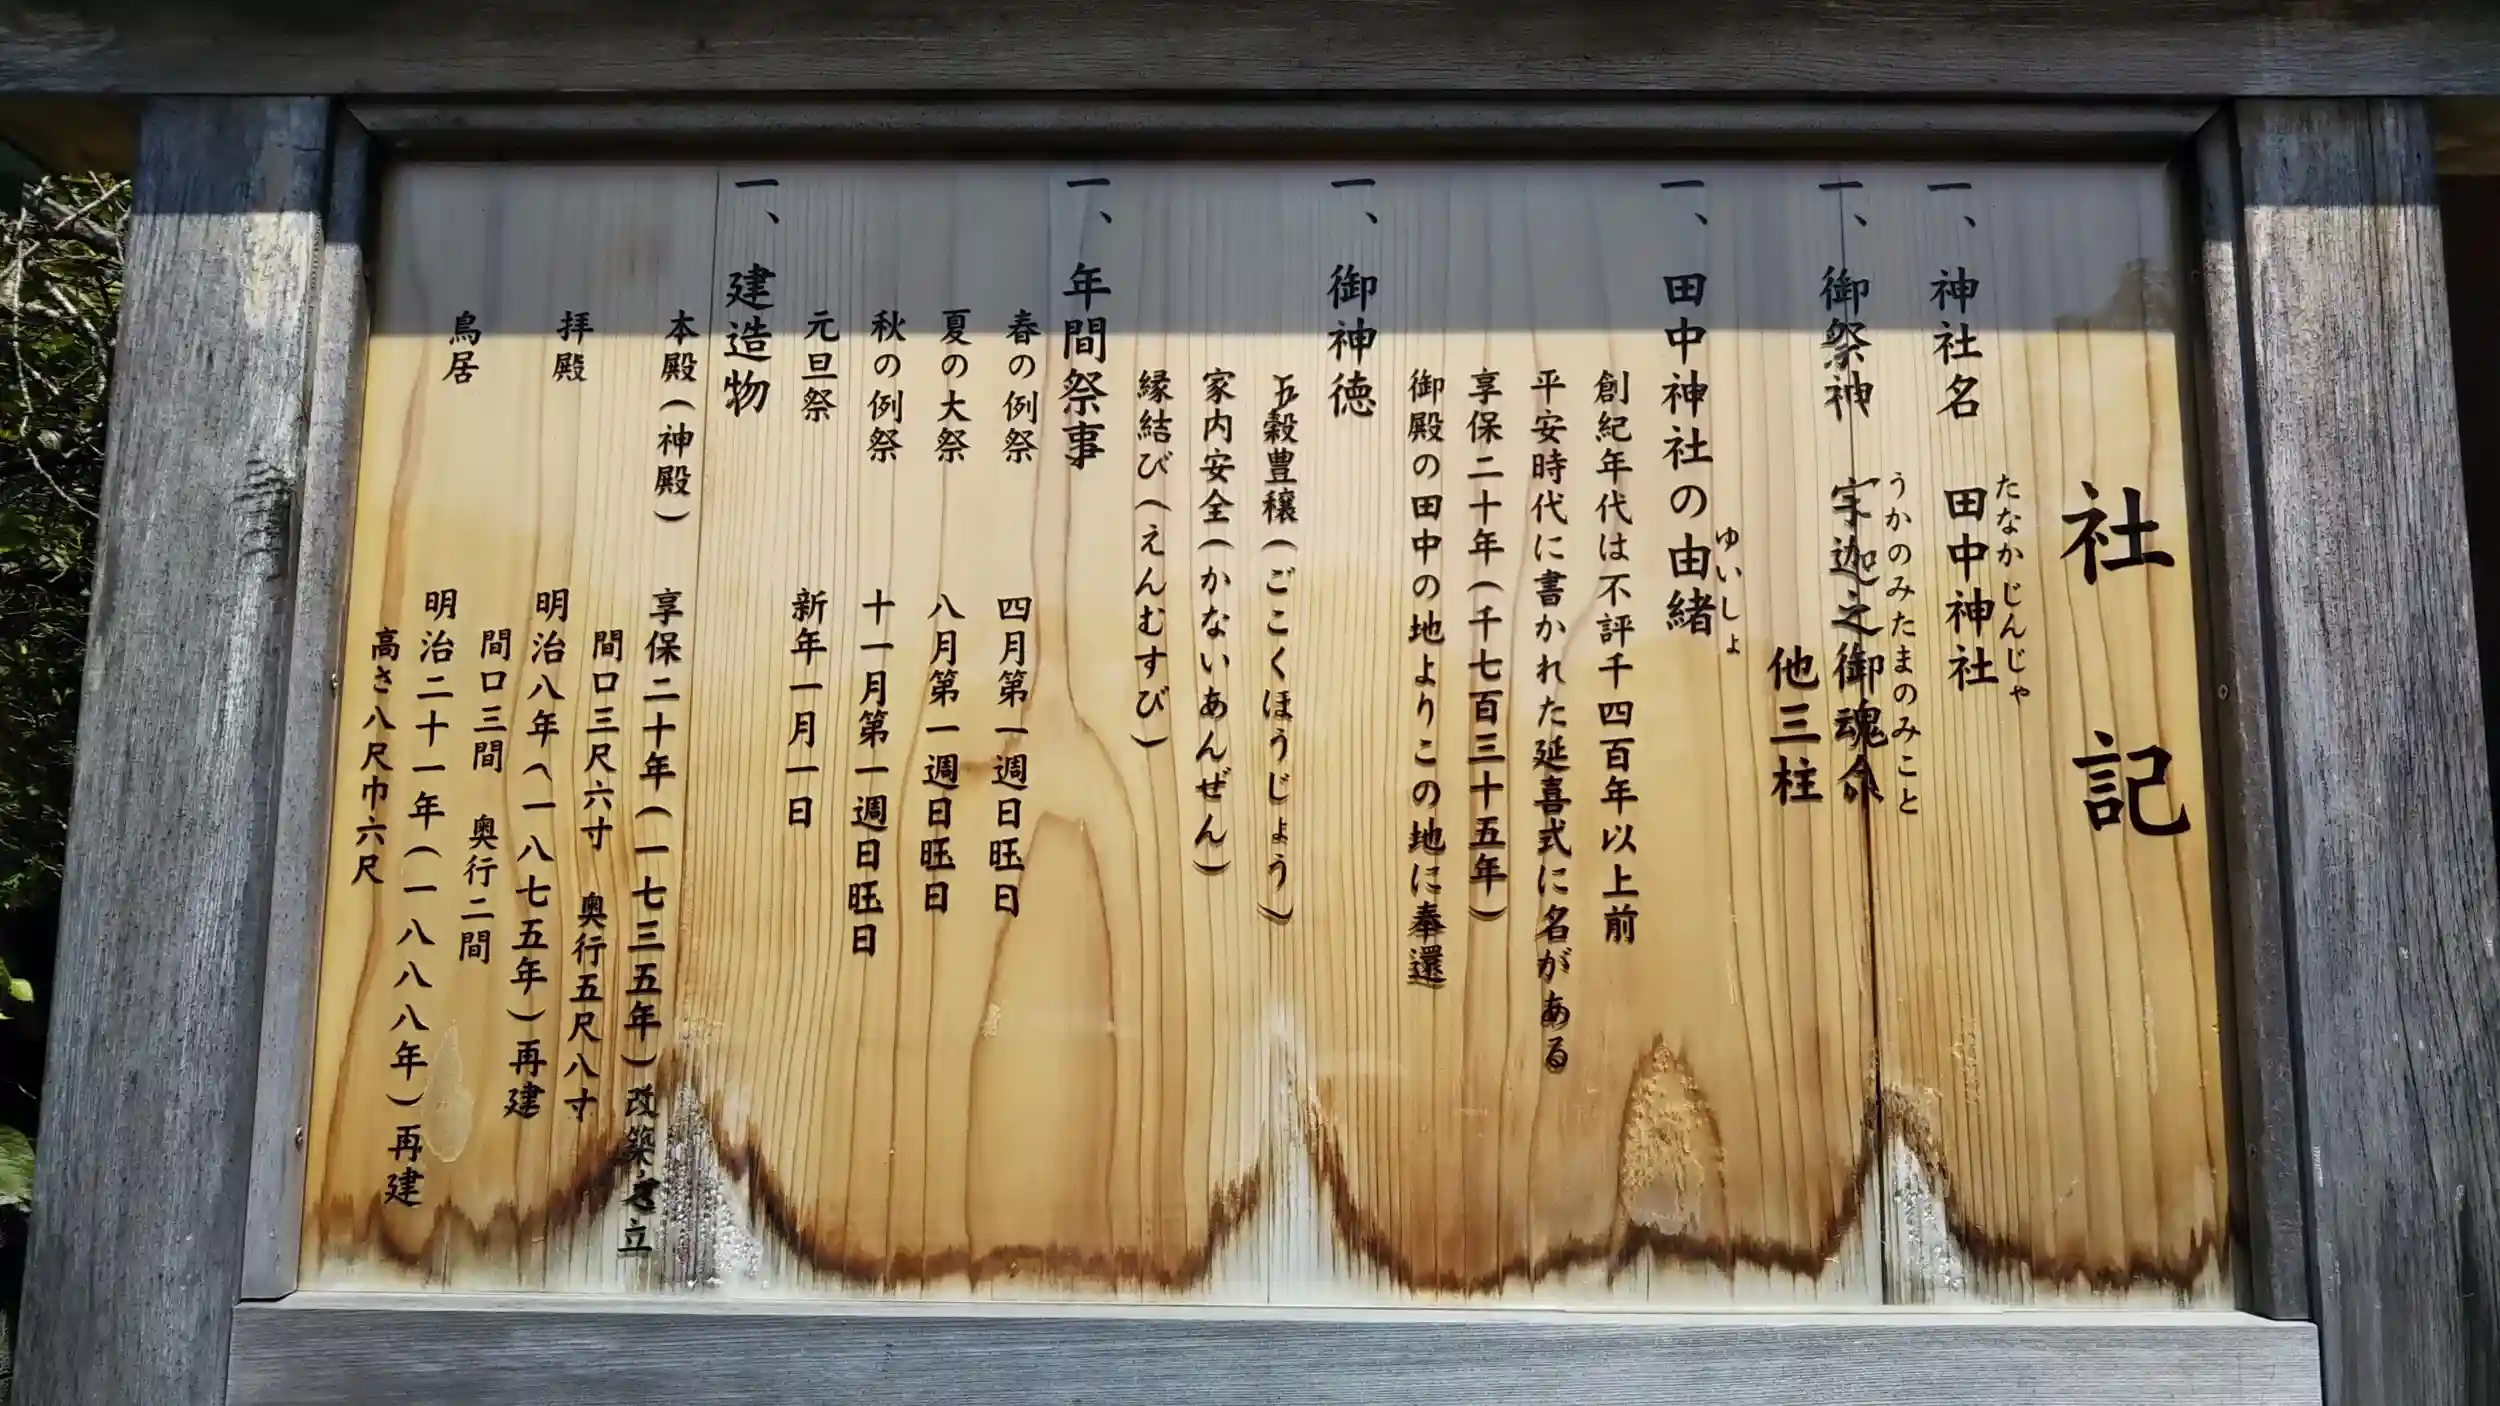 社記
一、神社名 田中神社
たなかじんじゃ
一、御祭神 宇迦之御魂命
うかのみたまのみこと
他三柱
一、田中神社の由緒
ゆいしょ
創紀年代は不評千四百年以上前
平安時代に書かれた延喜式に名がある
享保二十年(千七百三十五年)
御殿の田中の地よりこの地に奉還
一、御神徳
五穀豊穣(ごこくほうじょう)
家内安全(かないあんぜん)
縁結び(えんむすび)
一、年間祭事
春の例祭 四月第一週日旺日
夏の大祭 八月第一週日旺日
秋の例祭 十一月第一週日旺日
元旦祭 新年一月一日
一、建造物
本殿(神殿) 享保二十年(一七三五年)改築之立
間口三尺六寸 奥行五尺八寸
拝殿 明治八年(一八七五年)再建
間口三間 奥行二間
鳥居 明治二十一年(一八八八年)再建
高さ八尺巾六尺